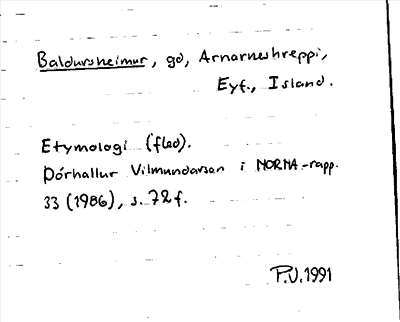 Baldursheimur, gd, Arnarneshreppi,
Eyf., Island.
Etymologi (fled).
Þórhallur Vilmundarson i NORNA-rapp.
33 (1986), s. 72 f.
P.V. 1991